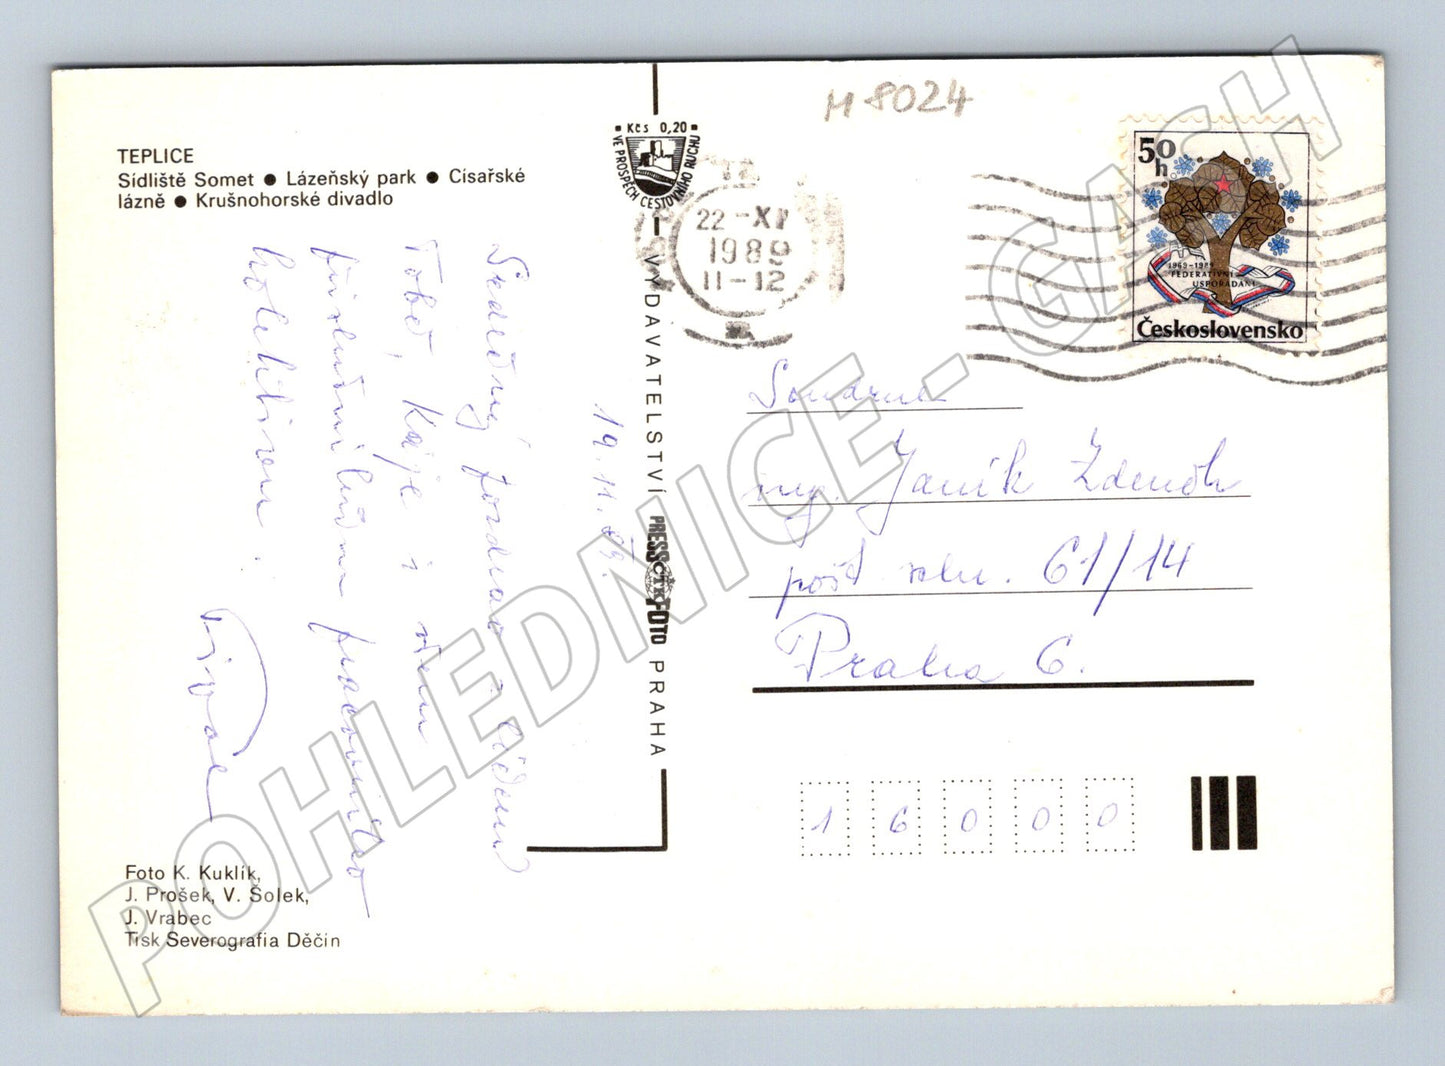 M 8024
TEPLICE
Sídliště Somet ● Lázeňský park ● Císařské
lázně ● Krušnohorské divadlo
Kčs 0,20
VE PROSPĚCH CESTOVNÍHO RUCHU
22 -XI
1989
11-12
50
h
1969-1989
FEDERATIVNÍ
USPOŘÁDÁNÍ
Československo
VYDAVATELSTVÍ PRESSFOTO PRAHA
ČTK
19. 11. 89
Srdečný pozdrav
Tobě, Káje i všem
kolektivem.
ing. Janík Zdeněk
pošt. schr. 61/14
Praha 6.
1 6 0 0 0
Foto K. Kuklík,
J. Prošek, V. Solek,
J. Vrabec
Tisk Severografia Děčín
POHLEDNICE - GASH